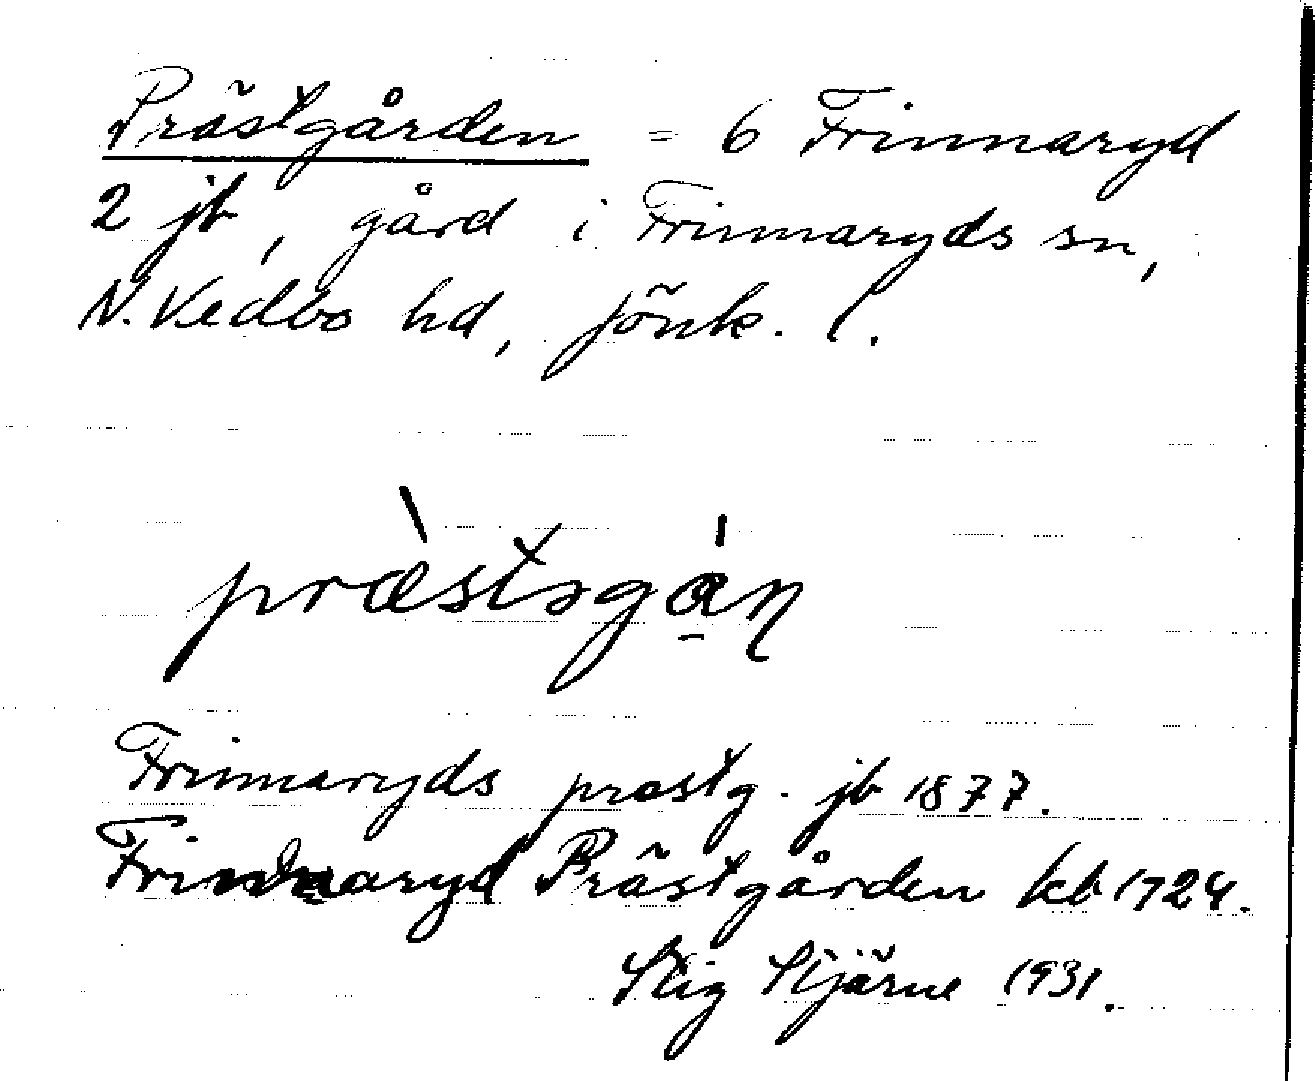 Prästgården = 6 Frinnaryd
2 jb, gård i Frinnaryds sn,
N. Vedbo hd, Jönk. l.
præ̀stəgɑ́ṇ
Frinnaryds prostg. jb 1877.
Frinnaryd Prästgården kb 1724.
Stig Stjärne 1931.